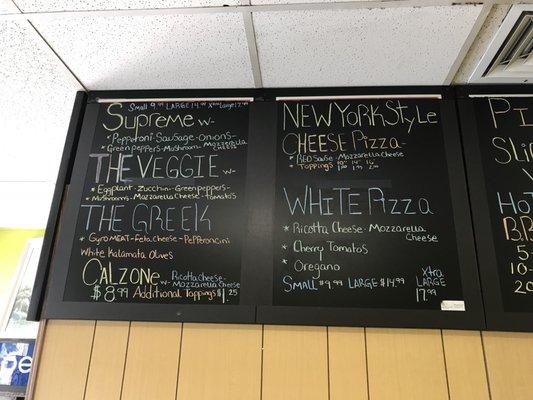 Small 9.99 LARGE 14.99 Xtra LARGE 17.99
Supreme w-
* Pepperoni-Sausage-Onions-
* Green peppers-Mushroom-Mozzarella CHEESE
THE VEGGIE w-
* Eggplant-Zucchini-Green peppers-
* Mushrooms-Mozzarella Cheese-tomatoes
THE GREEK
* Gyro MEAT-Feta Cheese-Pepperoncini
White Kalamata Olives
CALZONE w- Ricotta Cheese-
Mozzarella Cheese
$8.99 Additional Toppings $1.25
NEW YORK STYLE
CHEESE Pizza-
* RED Sauce-Mozzarella Cheese
Toppings 10" 14" 16"
WHITE Pizza
* Ricotta Cheese-Mozzarella
Cheese
* Cherry Tomatoes
* Oregano
Small $9.99 LARGE $14.99 Xtra LARGE 17.99